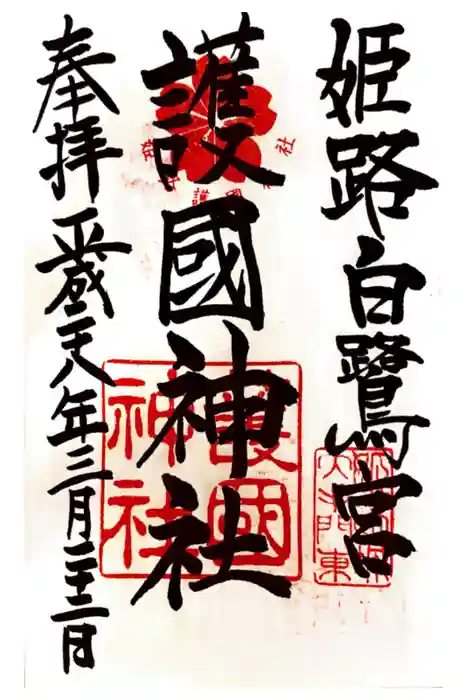 姫路白鷺宮
護國神社
奉拝 平成二十八年三月二十二日
護國
神社